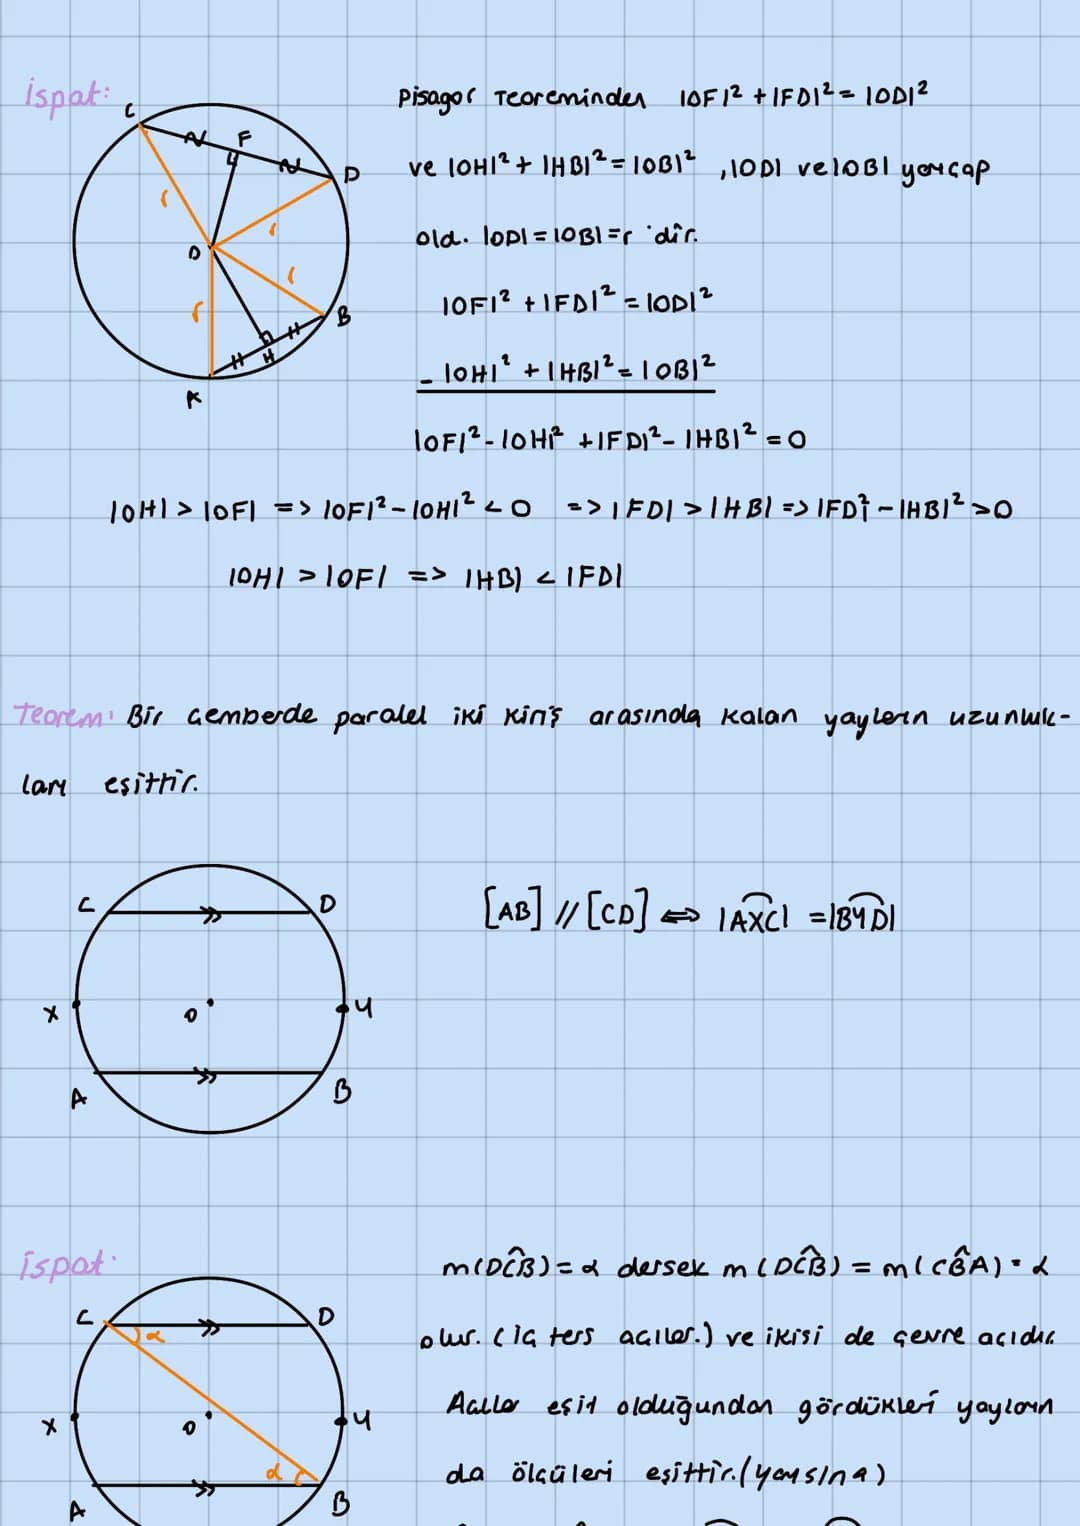 İspat:
Pisagor Teoreminden |OF|² + |FD|² = |OD|²
ve |OH|² + |HB|² = |OB|² , |OD| ve |OB| yarıçap
old. |OD| = |OB| = r 'dir.
|OF|² + |FD|² = |OD|²
- |OH|² + |HB|² = |OB|²
|OF|² - |OH|² + |FD|² - |HB|² = 0
C
F
D
r
r
O
r
r
B
H
A
|OH| > |OF| => |OF|² - |OH|² < 0 => |FD| > |HB| => |FD|² - |HB|² > 0
|OH| > |OF| => |HB| < |FD|
Teorem: Bir Çemberde paralel iki kiriş arasında kalan yayların uzunluk-
ları eşittir.
C
D
X
O
Y
A
B
[AB] // [CD] ⇔ |AXC| = |BYD|
İspat:
m(DĈB) = α dersek m(DĈB) = m(CB̂A) = α
olur. (iç ters açılar.) ve ikisi de çevre açıdır.
Açılar eşit olduğundan gördükleri yayların
da ölçüleri eşittir. (yarısına)
C
α
D
X
O
Y
α
A
B